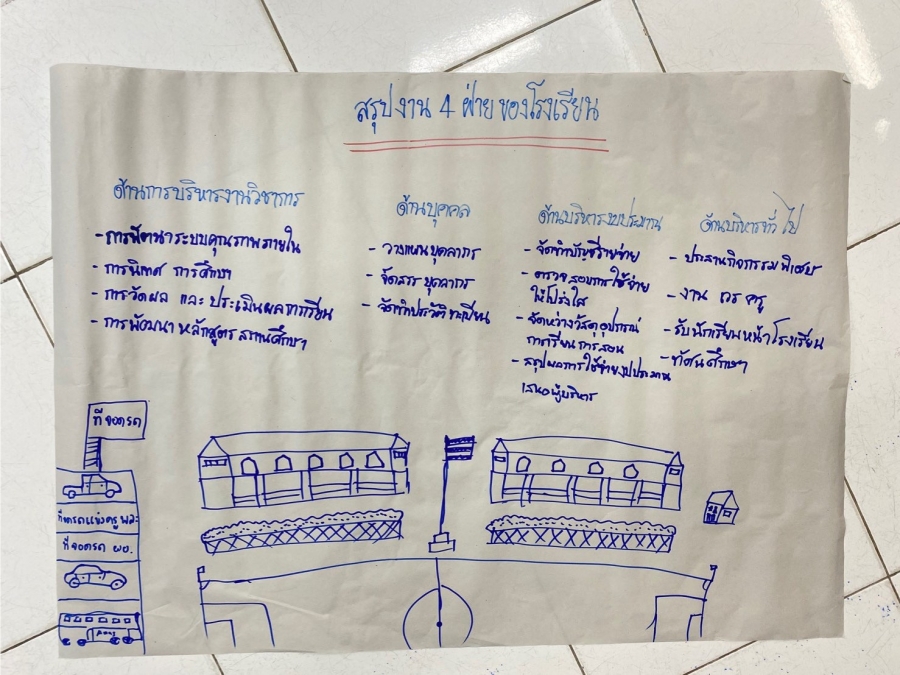 สรุปงาน 4 ฝ่าย ของโรงเรียน
ด้านการบริหารงานวิชาการ
- การพัฒนาระบบคุณภาพภายใน
- การนิเทศ การศึกษา
- การวัดผล และ ประเมินผลการเรียน
- การพัฒนา หลักสูตร สถานศึกษา
ด้านบุคคล
- วางแผนบุคลากร
- จัดสรร บุคลากร
- จัดทำประวัติ ทะเบียน
ด้านบริหารงบประมาณ
- จัดทำบัญชีรายจ่าย
- ตรวจ สอบการใช้จ่าย
ให้โปร่งใส
- จัดหาวัสดุอุปกรณ์
การเรียน การสอน
- สรุปผลการใช้จ่ายงบประมาณ
เสนอผู้บริหาร
ด้านบริหารทั่วไป
- ประสานกิจกรรม พิเศษ
- งาน เวร ครู
- รับนักเรียนหน้าโรงเรียน
- ทัศนศึกษา
ที่จอดรถ
ที่จอดรถ ผอ.